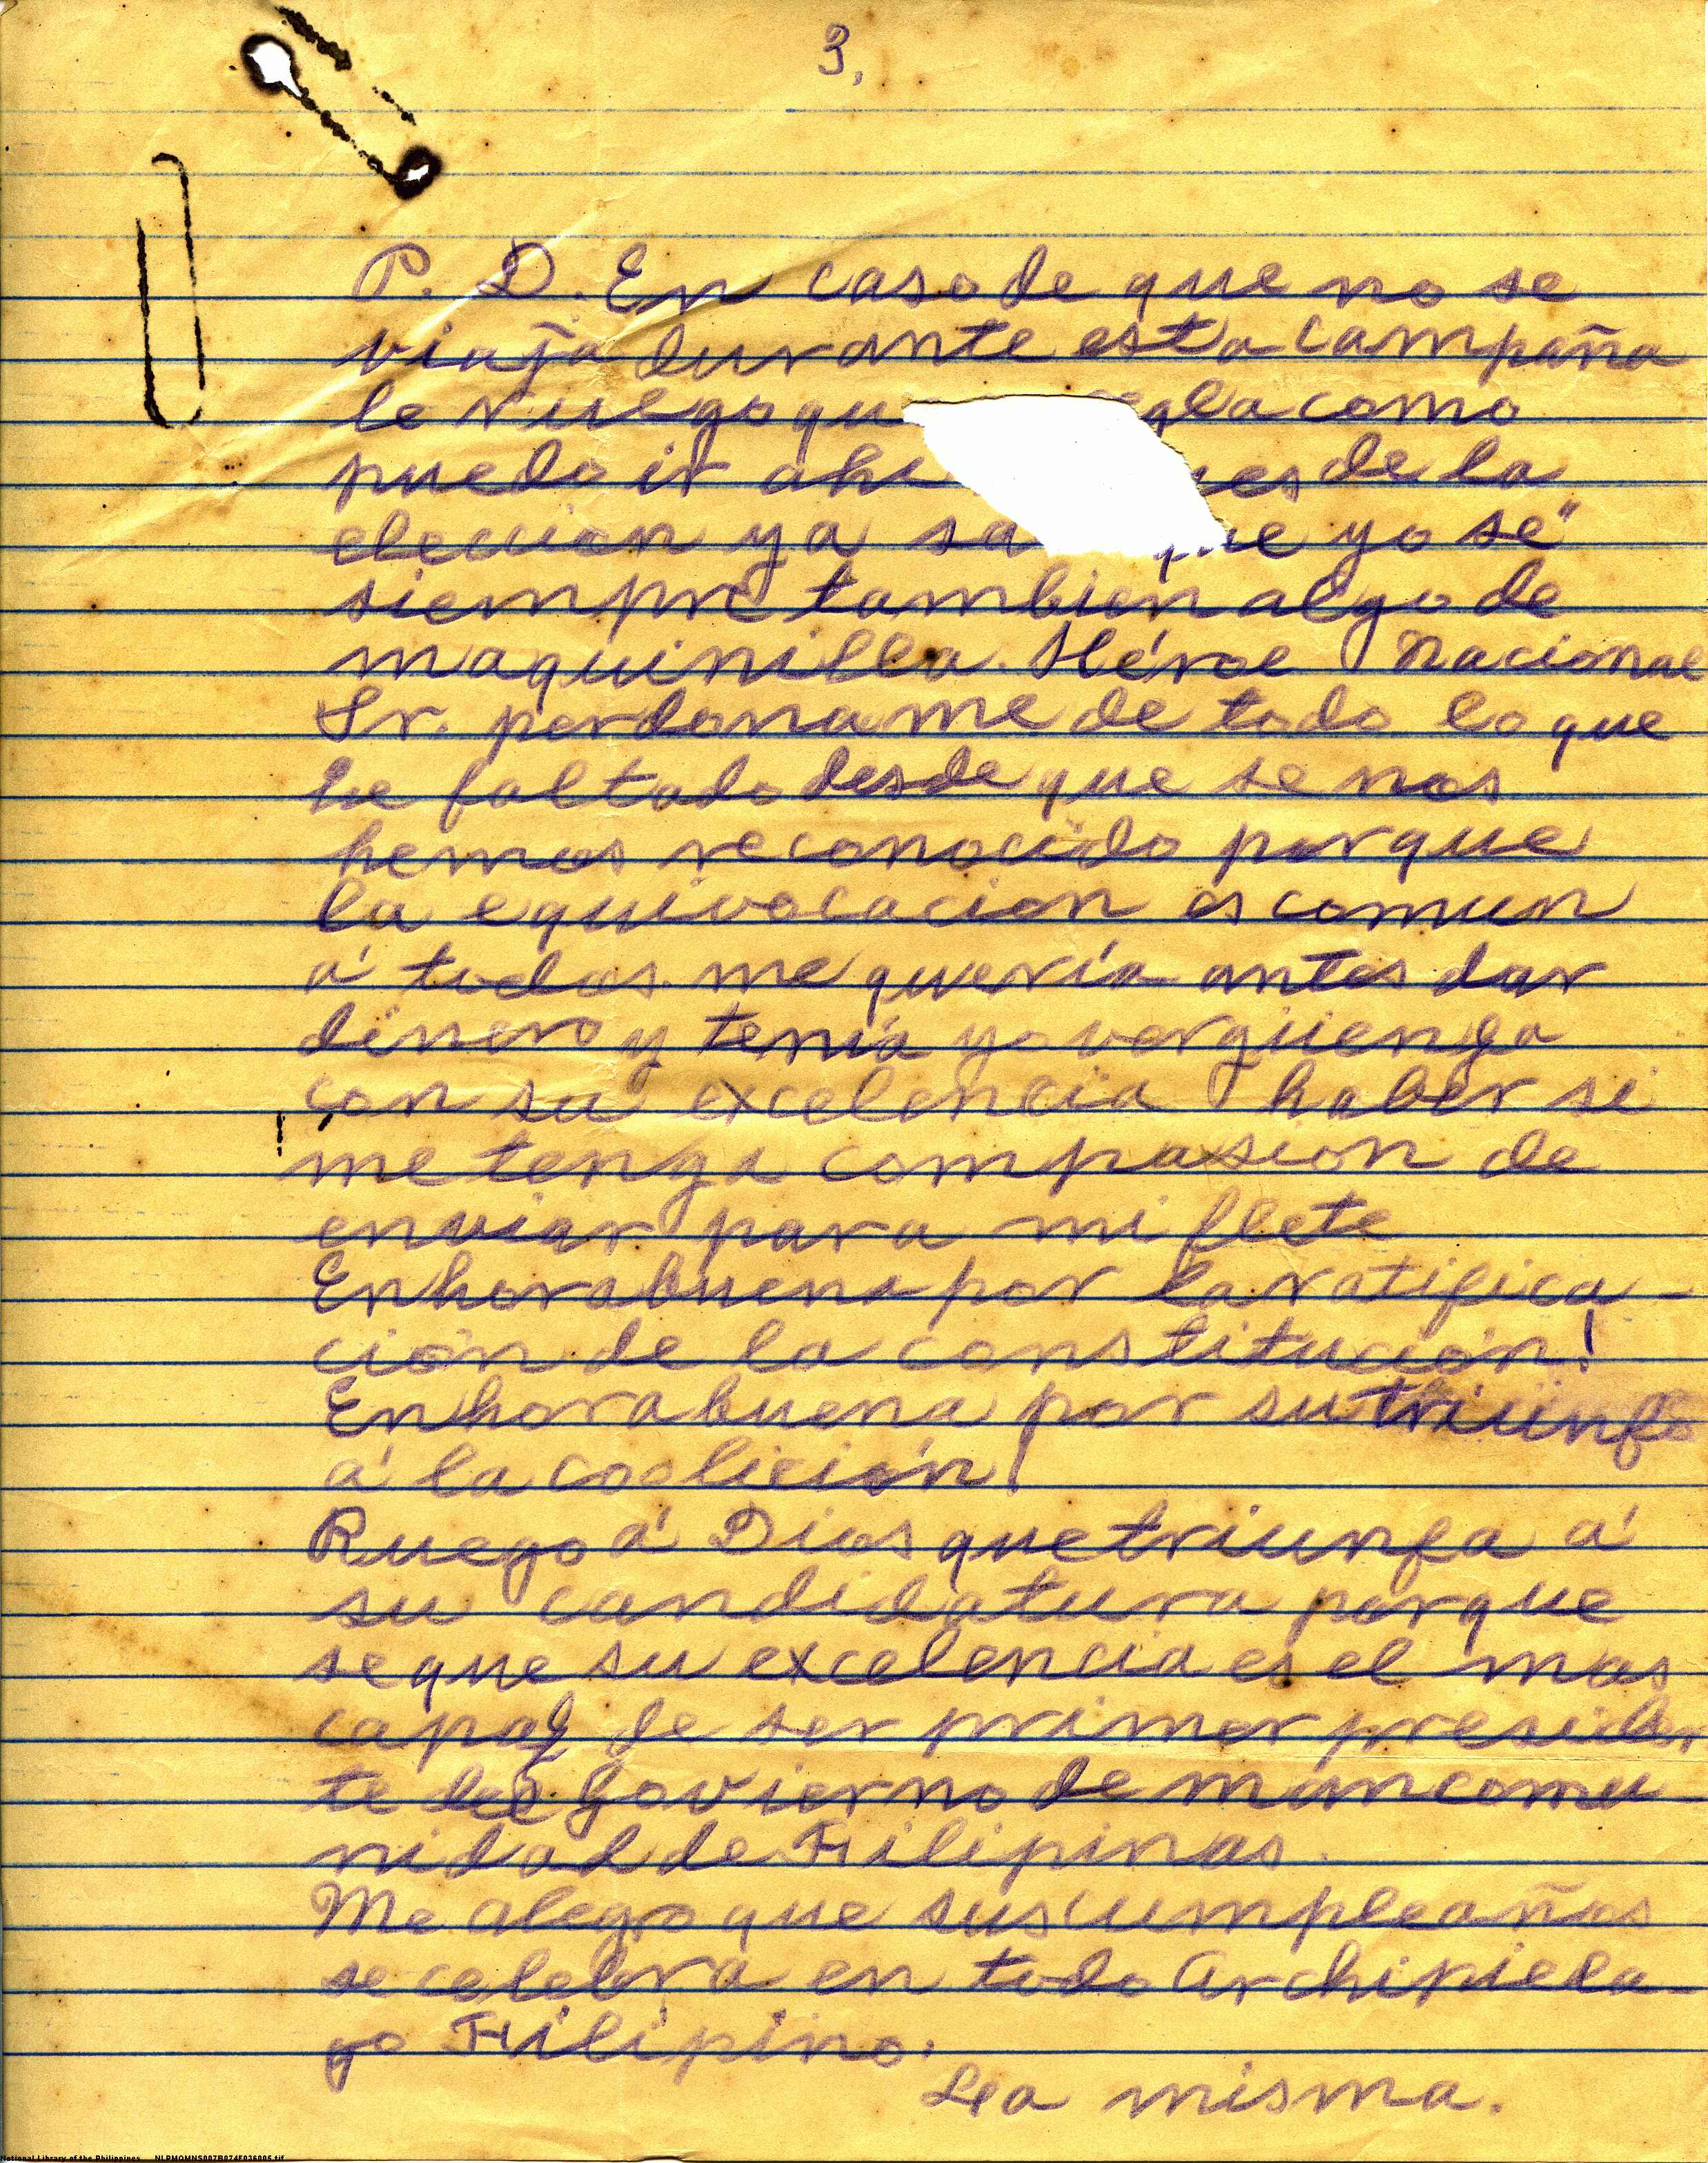 3.
P. D. En caso de que no se
viaja durante esta campaña
le ruego qu egla como
puedo ir ahi ues de la
eleccion ya sa que yo se"
siempre tambien algo de
maquinilla. Héroe Nacional
Sr. perdoname de todo lo que
he faltado desde que se nos
hemos reconocido porque
la equivocacion es comun
á todos. me quería antes dar
dinero y tenía yo vergüenza
con su excelencia haber si
me tenga compasion de
enviar para mi flete
Enhorabuena por la ratifica-
ción de la constitución!
Enhorabuena por su triunfo
á la coalición!
Ruego á Dios que triunfa á
su candidatura porque
se que su excelencia es el mas
capaz de ser primer presiden
te del Govierno de mancomu
nidad de Filipinas.
Me alegro que sus cumpleaños
se celebra en todo Archipiela-
go Filipino.
La misma.
National Library of the Philippines NLPMQMNS007B074F036006.tif